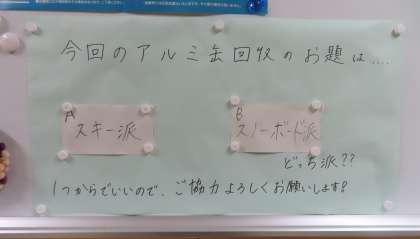 今回のアルミ缶回収のお題は....
A
スキー派
B
スノーボード派
どっち派??
1つからでいいので、ご協力よろしくお願いします!